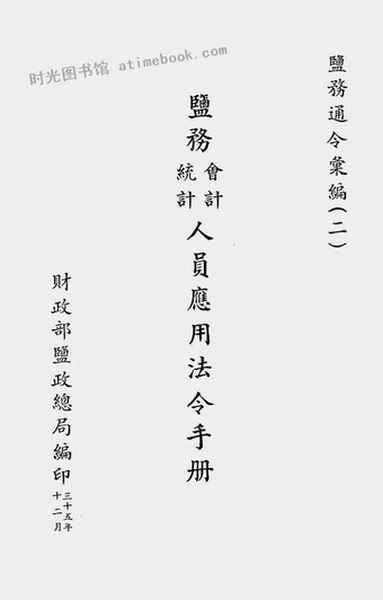 时光图书馆 atimebook.com
鹽務通令彙編(二)
鹽務會計統計人員應用法令手册
財政部鹽政總局編印三十五年十二月